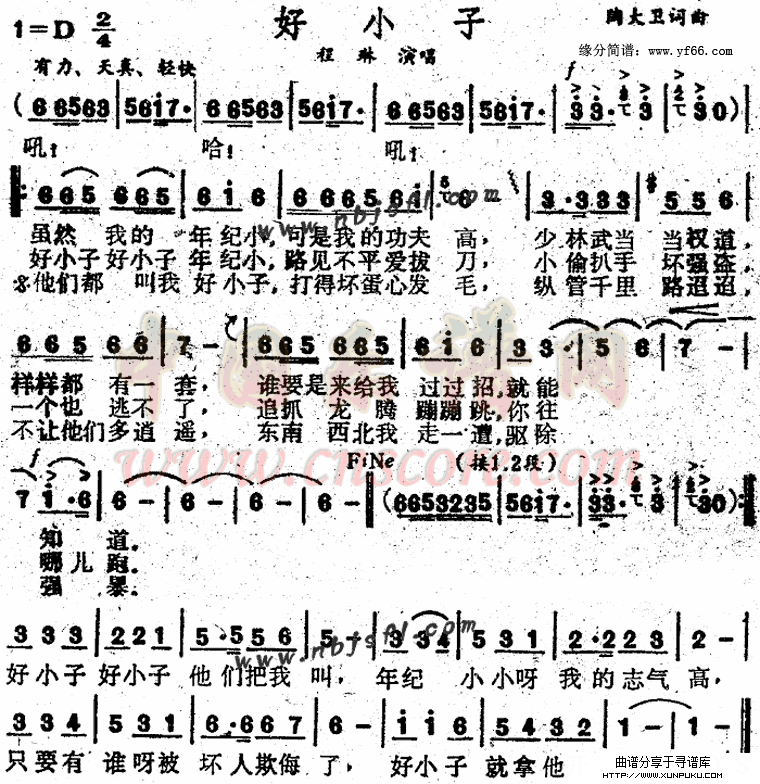 好小子
1=D 2/4
陶大卫词曲
程琳 演唱
缘分简谱：www.yf66.com
有力、天真、轻快
f
(6 6563 | 5617· | 6 6563 | 5617· | 6 6563 | 5617· | 33· 3 | 30)
吼! 哈! 吼!
665 665 | 616 | 666561 | 6 | 3·333 | 556
虽然 我的 年纪小,可是我的功夫 高, 少林武当 当权道,
好小子好小子 年纪小,路见不平爱拔 刀, 小偷扒手 坏强盗,
他们都 叫我 好小子,打得坏蛋心发 毛, 纵管千里 路迢迢,
665 66 | 7 - | 665 665 | 616 | 33 - | 56 | 7 -
样样都 有一 套, 谁要是来给我 过过招,就能
一个也 逃不 了, 追抓 龙 腾 蹦蹦跳,你往
不让他们多逍 遥, 东南 西北我 走一遭,驱除
FiNe (接1.2段)
f
7 1·6 | 6 - | 6 - | 6 - | 6 - | (6653235 | 5617· | 33· 3 | 30)
知 道.
哪儿跑.
强 暴.
333 | 221 | 5·556 | 5 - | 334 | 531 | 2·223 | 2 - |
好小子 好小子 他们把我 叫, 年纪 小小呀 我的志气 高,
334 | 531 | 6·667 | 6 - | 116 | 545 | 1 - | 1 - |
只要有 谁呀被 坏人欺侮 了, 好小子 就拿他
www.nbjsfl.com
www.nbjsfl.com
中国曲谱网
www.cnscore.com
曲谱分享于寻谱库
WWW.XUNPUKU.COM